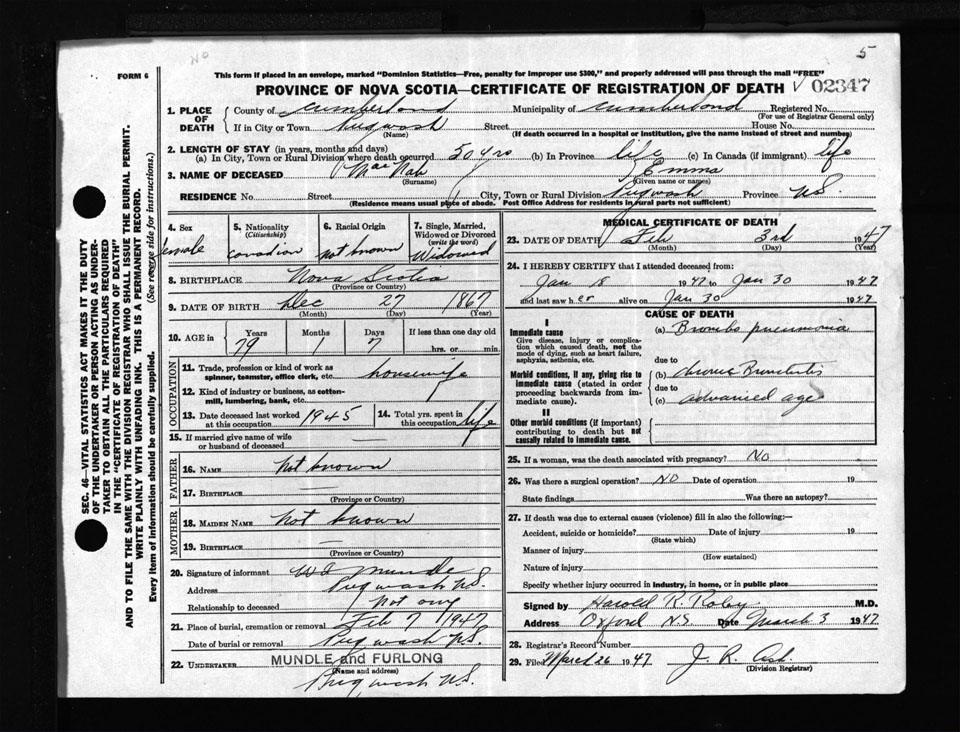 NO
5
FORM 6
This form if placed in an envelope, marked "Dominion Statistics—Free, penalty for improper use $300," and properly addressed will pass through the mail "FREE"
PROVINCE OF NOVA SCOTIA—CERTIFICATE OF REGISTRATION OF DEATH
02347
1. PLACE OF DEATH
County of Cumberland Municipality of Cumberland Registered No.
(For use of Registrar General only)
If in City or Town Pugwash Street House No.
(Name) (If death occurred in a hospital or institution, give the name instead of street and number)
2. LENGTH OF STAY (in years, months and days)
(a) In City, Town or Rural Division where death occurred 50 yrs (b) In Province life (c) In Canada (if immigrant) life
3. NAME OF DECEASED MacNab Emma
(Surname) (Given name or names)
RESIDENCE No. Street City, Town or Rural Division Pugwash Province N.S.
(Residence means usual place of abode. Post Office Address for residents in rural parts not sufficient)
4. Sex
female
5. Nationality
(Citizenship)
canadian
6. Racial Origin
not known
7. Single, Married, Widowed or Divorced
(write the word)
Widowed
8. BIRTHPLACE Nova Scotia
(Province or Country)
9. DATE OF BIRTH Dec 27 1867
(Month) (Day) (Year)
10. AGE in Years Months Days If less than one day old
79 1 7 hrs. or min.
OCCUPATION
11. Trade, profession or kind of work as spinner, teamster, office clerk, etc. housewife
12. Kind of industry or business, as cotton-mill, lumbering, bank, etc.
13. Date deceased last worked at this occupation 1945
14. Total yrs. spent in this occupation life
15. If married give name of wife or husband of deceased —
FATHER
16. NAME Not known
17. BIRTHPLACE —
(Province or Country)
MOTHER
18. MAIDEN NAME Not known
19. BIRTHPLACE —
(Province or Country)
20. Signature of informant Mundle
Address Pugwash N.S.
Relationship to deceased Not any
21. Place of burial, cremation or removal Feb 7 1947
Date of burial or removal Pugwash N.S.
22. UNDERTAKER MUNDLE and FURLONG
(Name and address)
Pugwash N.S.
MEDICAL CERTIFICATE OF DEATH
23. DATE OF DEATH Feb 3rd 1947
(Month) (Day) (Year)
24. I HEREBY CERTIFY that I attended deceased from:
Jan 18 1947 to Jan 30 1947
and last saw her alive on Jan 30 1947
CAUSE OF DEATH
I
Immediate cause
Give disease, injury or complication which caused death, not the mode of dying, such as heart failure, asphyxia, asthenia, etc.
(a) Broncho pneumonia
due to
Morbid conditions, if any, giving rise to immediate cause (stated in order proceeding backwards from immediate cause).
(b) chronic Bronchitis
due to
(c) advanced age
II
Other morbid conditions (if important) contributing to death but not causally related to immediate cause.
25. If a woman, was the death associated with pregnancy? NO
26. Was there a surgical operation? NO Date of operation 19
State findings Was there an autopsy?
27. If death was due to external causes (violence) fill in also the following:—
Accident, suicide or homicide? Date of injury 19
(State which)
Manner of injury
(How sustained)
Nature of injury
Specify whether injury occurred in industry, in home, or in public place
Signed by Harold R. Roby M.D.
Address Oxford N.S Date March 3 1947
28. Registrar's Record Number
29. Filed March 26 1947 J. R. Ash
(Division Registrar)
SEC. 46—VITAL STATISTICS ACT MAKES IT THE DUTY
OF THE UNDERTAKER OR PERSON ACTING AS UNDER-
TAKER TO OBTAIN ALL THE PARTICULARS REQUIRED
IN THE "CERTIFICATE OF REGISTRATION OF DEATH"
AND TO FILE THE SAME WITH THE DIVISION REGISTRAR WHO SHALL ISSUE THE BURIAL PERMIT.
WRITE PLAINLY WITH UNFADING INK. THIS IS A PERMANENT RECORD.
Every item of information should be carefully supplied. (See reverse side for instructions.)